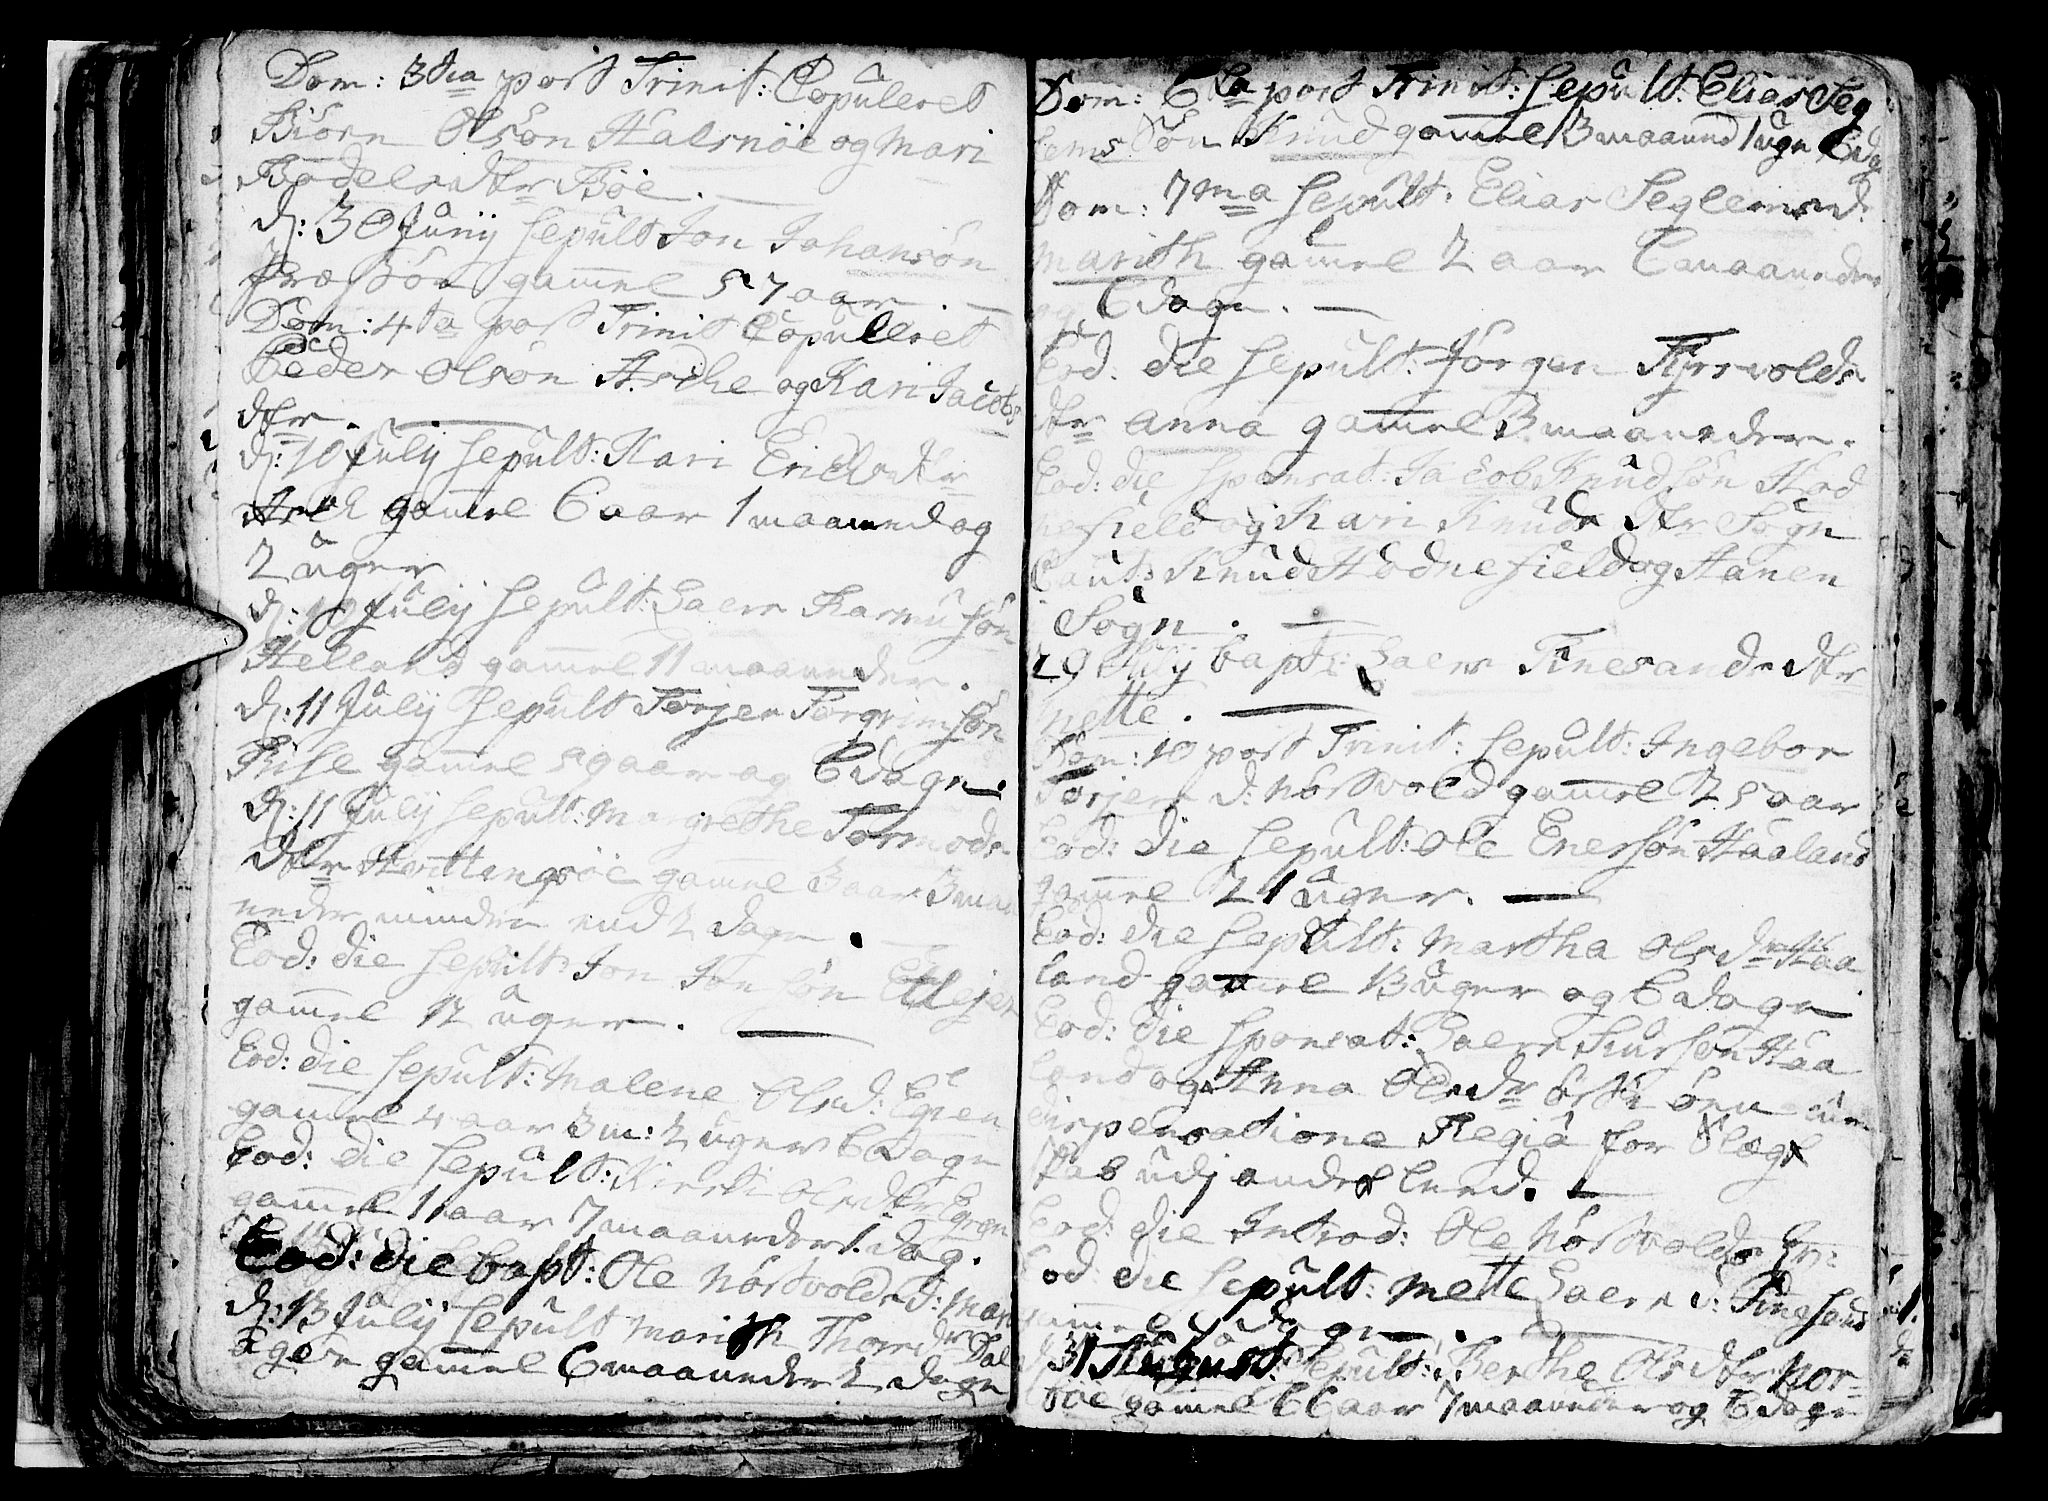 Dom: 3tia post Trinit: Copuleret
Biörn Olsön Halsnöe og Mari
Bodelsdtr Böe.
d: 30 Junij sepult Jon Johansön
gammel 57 aar.
Dom: 4ta post Trinit Copulleret
Peder Olsön Aske og Kari Jacobs
dtr.
d: 10 July sepult: Kari Erichsdtr
Ask gammel 6 aar 1 maaned og
2 uger
d: 10 July sepult: Laers Rasmusön
Helland gammel 11 maaneder.
d: 11 July sepult Torjer Torgrimsön
Rise gammel 59 aar og 6 dage.
d: 11 July sepult: Margrethe Tormods
dtr gammel 3 aar 3 maa
neder minder end 2 dage.
Eod: die sepult: Jon Jonsön
gammel 12 uger.
Eod: die sepult: Malene Olsd: Egren
gammel 4 aar 3 m: 2 uger 6 dage
Eod: die sepult: Kirsti Olsdtr Egren
gammel 1 aar 7 maaneder 1 dag.
Eod: die bapt: Ole Nörstvolds d: Mari
d: 13 July sepult Marith Thoresdr Dal
ager gammel 6 maaneder 2 dage
Dom: 6ta post Trinit: sepult: Elias Seg
lems Sön Knud gammel 3 maaned 1 uge 6 dag
Dom: 7ma sepult: Elias Seglems d:
Marith gammel 2 aar 6 maaneder
og 6 dage.
Eod. die sepult: Jörgen Kyrrvolds
dtr Anna gammel 3 maaneder.
Eod: die sponsat: Jacob Knudsön Hod
nefield og Kari Knudsdtr Sögn
Caut: Knud Hodnefield og Hanen
Sögn.
29 July bapt: Laers Finesands dtr
Mette.
Dom: 10 post Trinit: sepult: Ingebor
Torjers d: Nörstvold gammel 25 aar
Eod: die sepult: Ole Enersön Haaland
gammel 21 uger.
Eod: die sepult: Martha Olsdr Haa
land gammel 13 uger og 6 dage
Eod: die sponsat: Laers Siursön Haa
land og Anna Olsdr cum
dispensatione Regia for Slægt
skab udj andet leed.
Eod: die Introd: Ole Nörstvolds
Eod: die sepult: Mette Laers d: Finesand
gammel dage.
31 August: sepult: Berthe Olsdtr Nor-
böe gammel 66 aar 7 maaneder og 6 dage